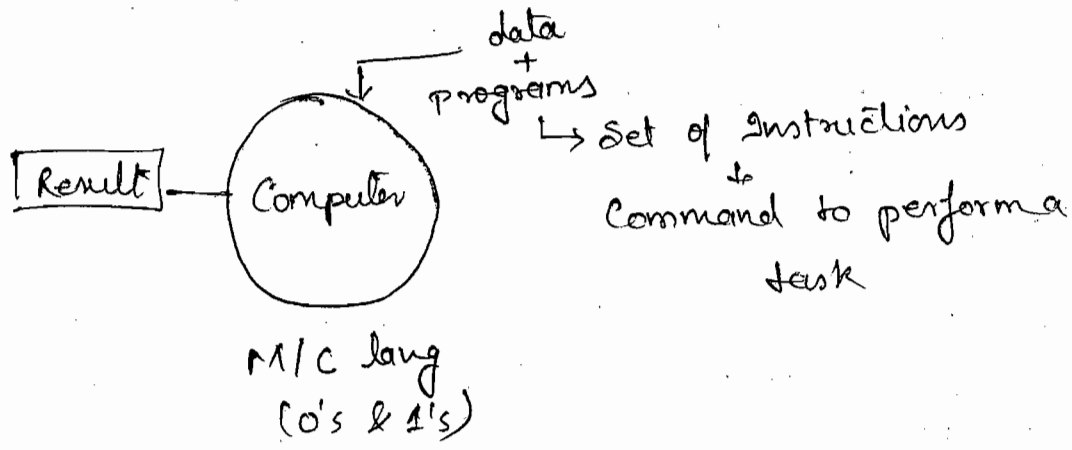 data
+
programs
↳ Set of Instructions
↓
Command to perform a
task
Result
Computer
M/C lang
(0's & 1's)